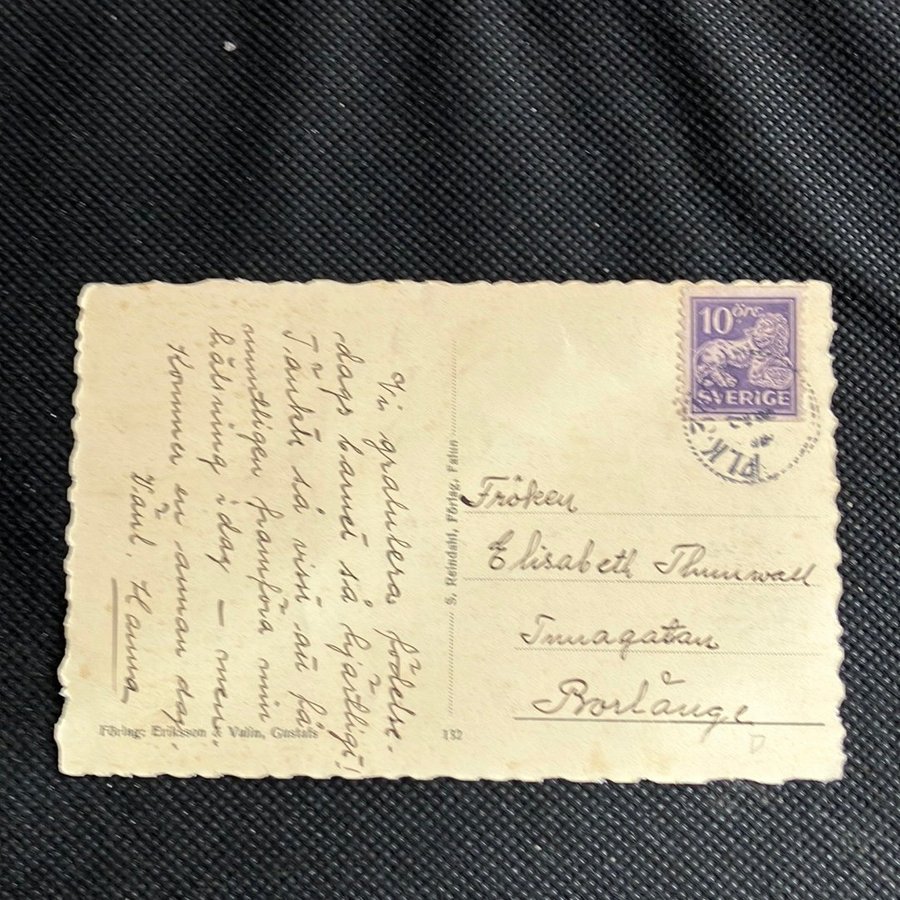 Vi gratulera födelse-
dags barnet så hjärtligt!
Tänkte så visst att få
muntligen framföra min
hälsning idag — men.
Kommer en annan dag.
Vänl. Hanna
Föring: Eriksson & Valin, Gustafs
152
S. Reindahl, Förlag, Falun
10 öre
SVERIGE
PLK
Fröken
Elisabeth Thunwall
Tunagatan
Borlänge
D